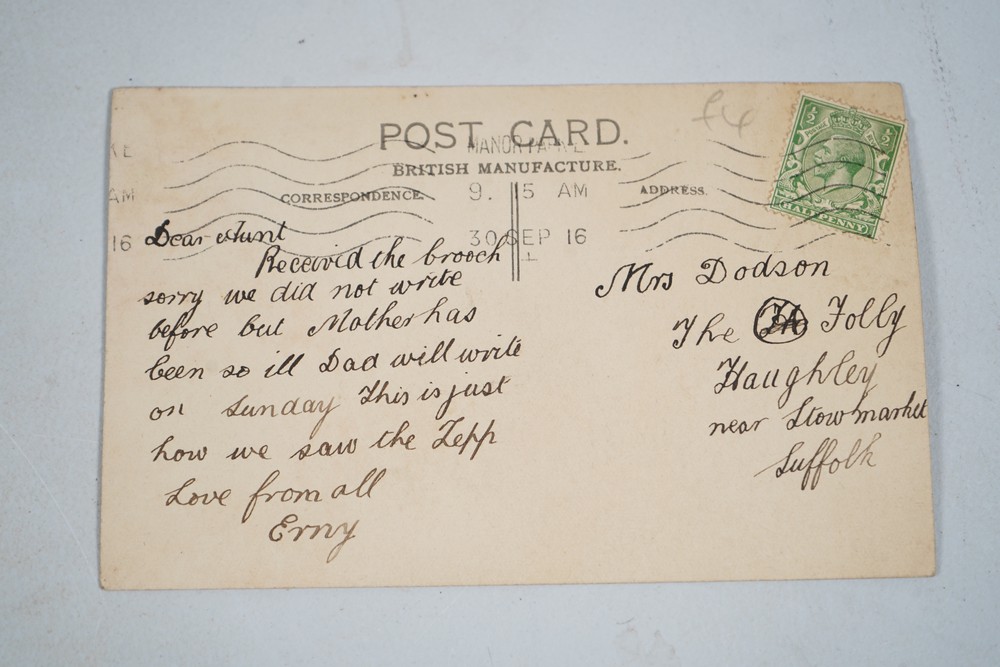 £4
POST CARD.
MANOR PARK E
BRITISH MANUFACTURE.
CORRESPONDENCE.
9. 15 AM
ADDRESS.
30 SEP 16
K E
AM
16
½ ½
HALFPENNY
Dear Aunt
Receivid the brooch
sorry we did not write
before but Mother has
been so ill Dad will write
on Sunday This is just
how we saw the Zepp
Love from all
Erny
Mrs Dodson
The Folly
Haughley
near Stowmarket
Suffolk